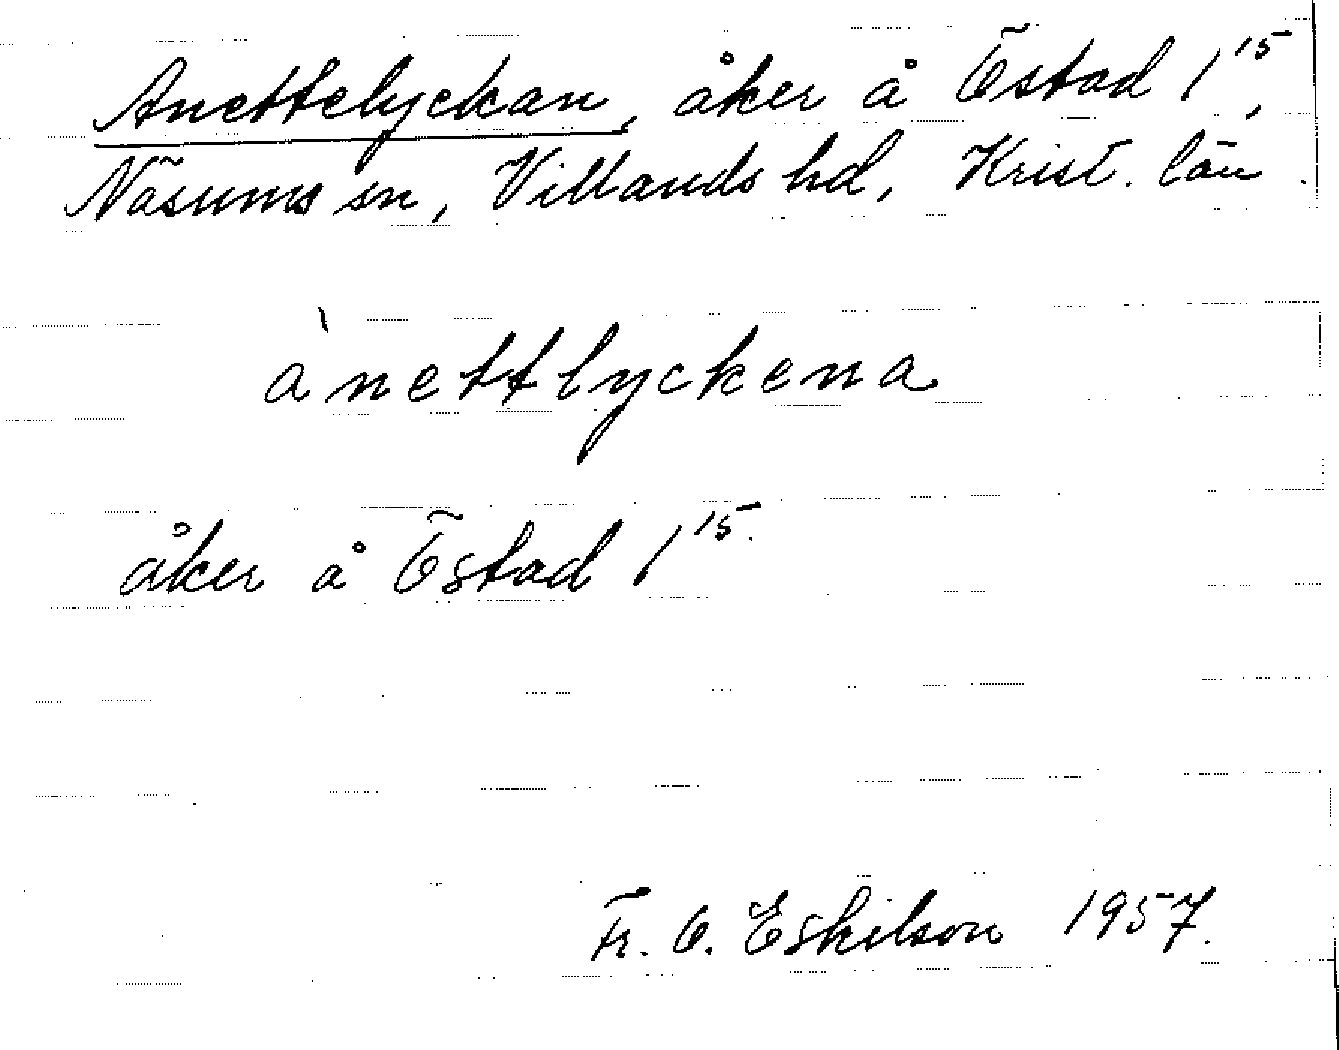 Anettelyckan, åker å Östad 1¹⁵,
Näsums sn, Villands hd, Krist. län.
ànettlyckena
åker å Östad 1¹⁵.
Fr. O. Eskilson 1957.